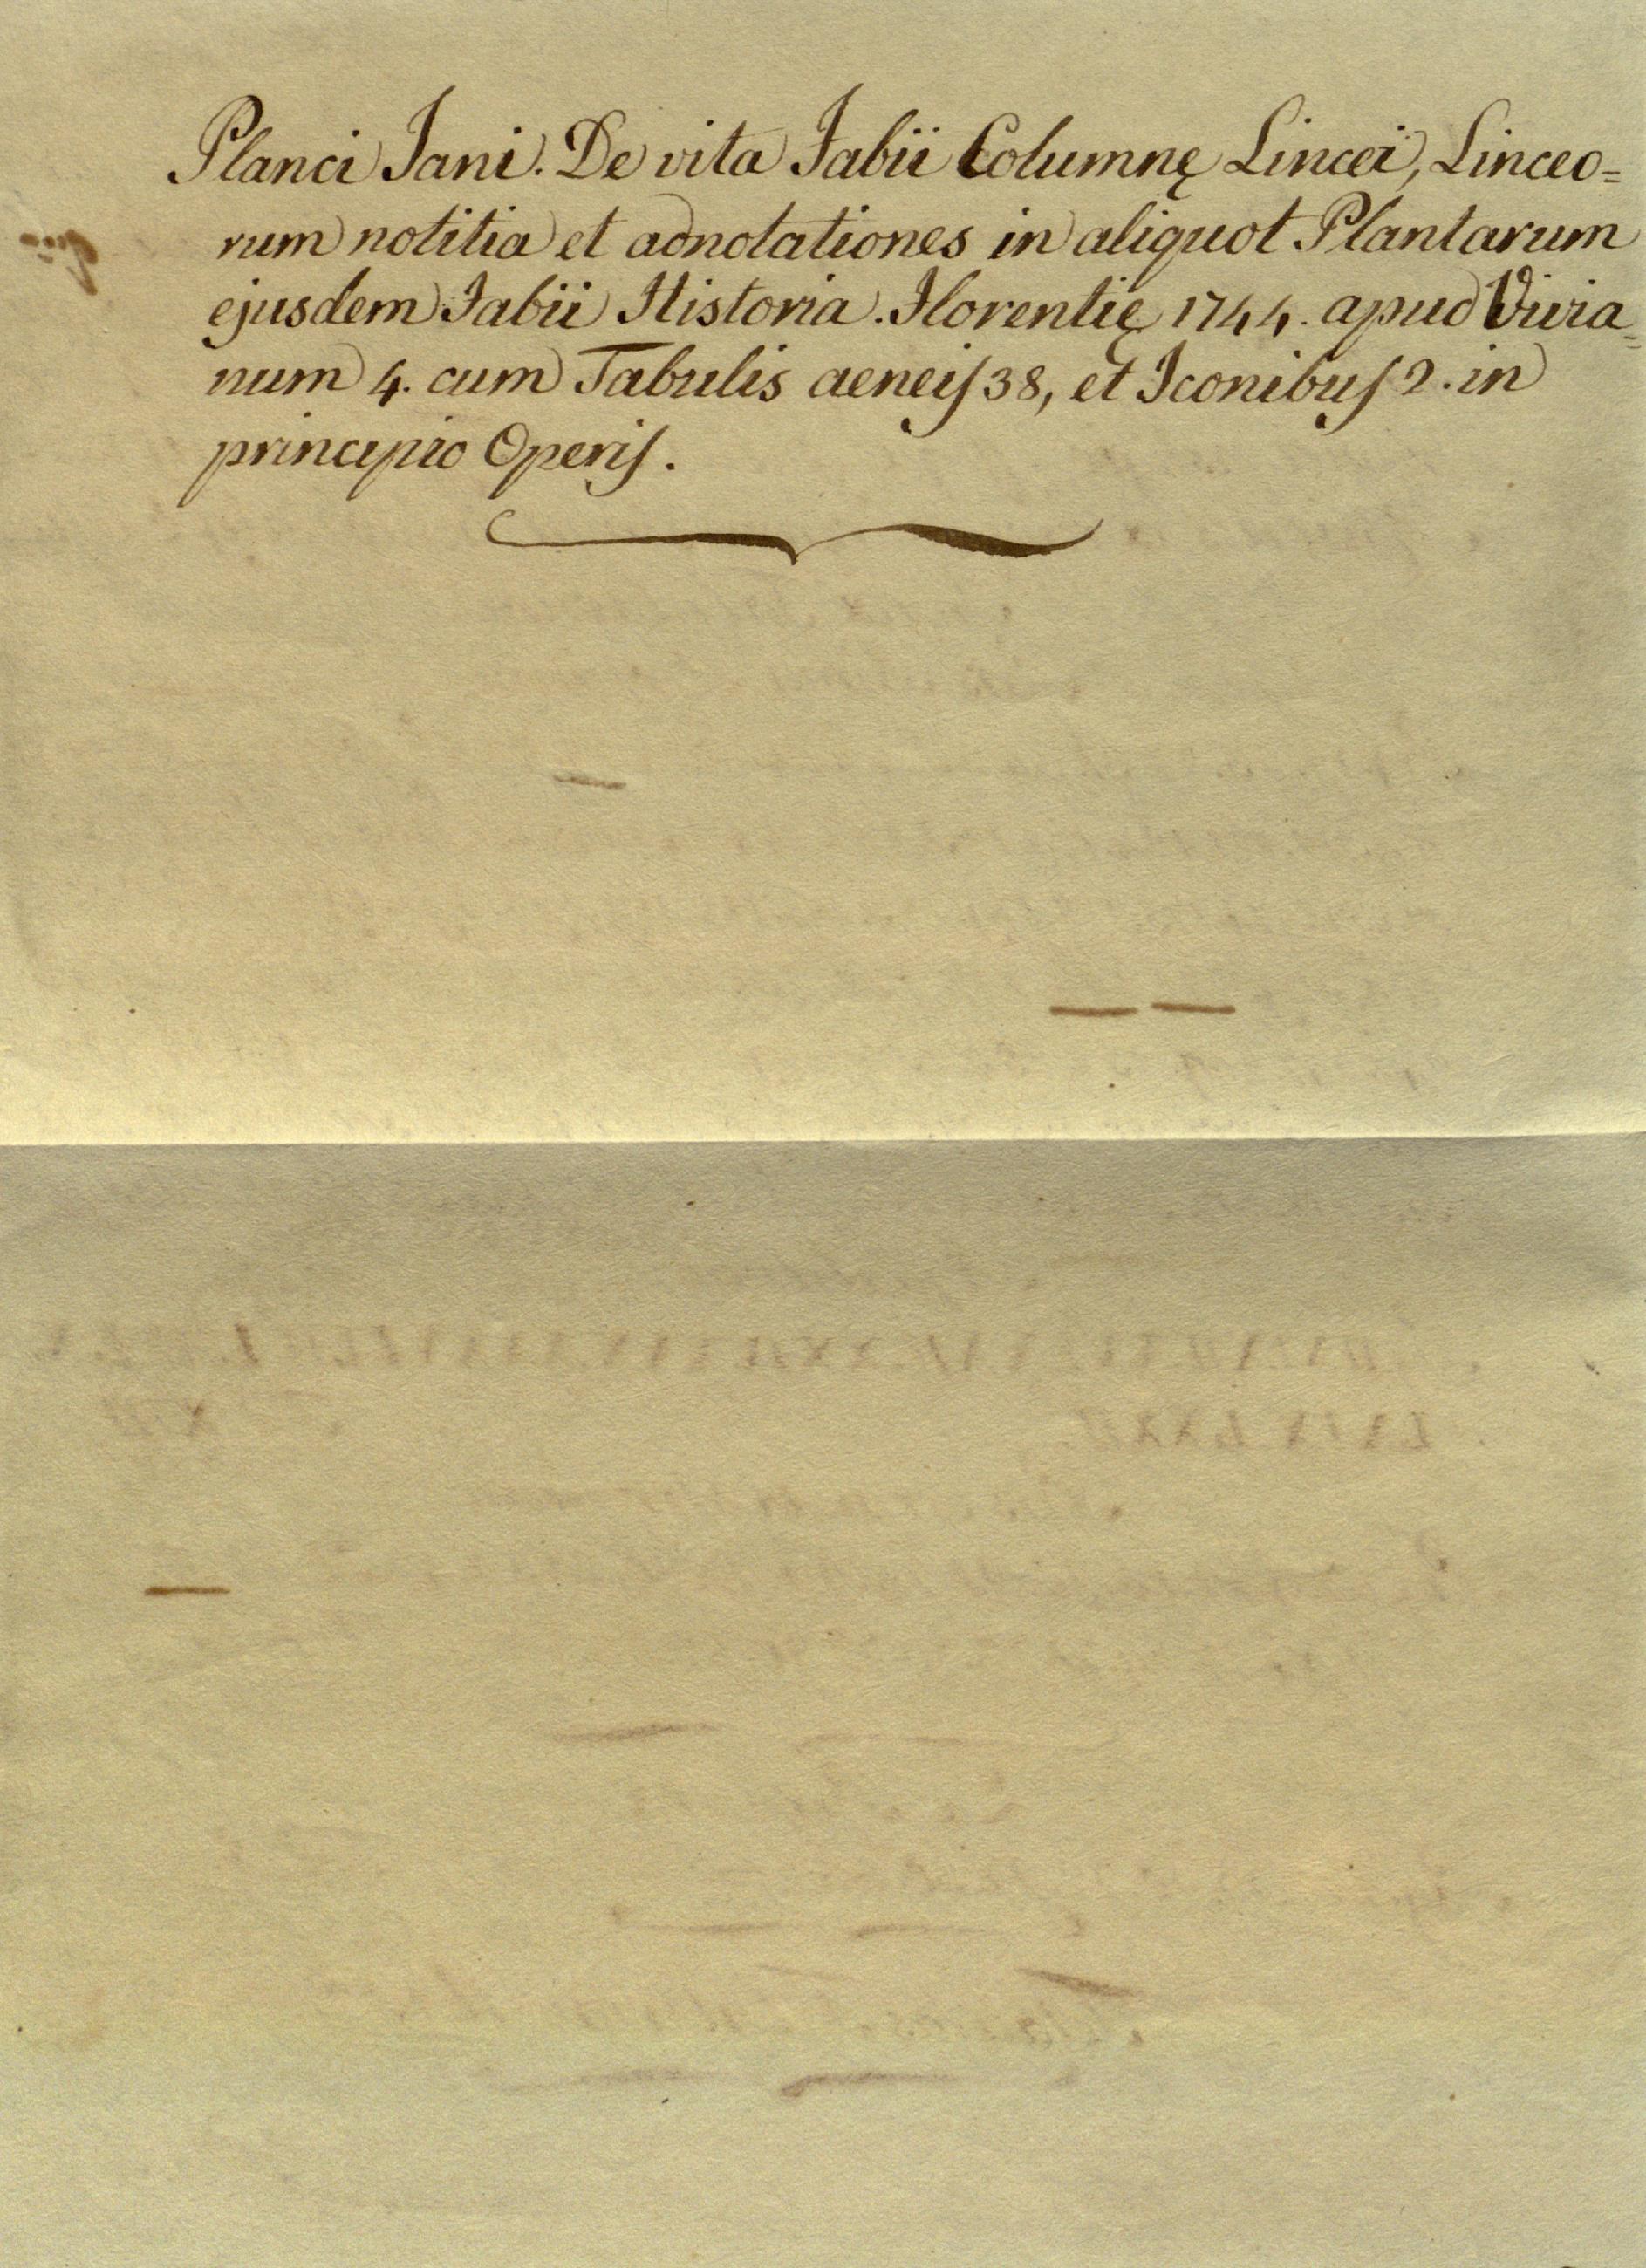 Planci Jani. De vita Fabii Columnę Lincei, Linceo=
rum notitia et adnotationes in aliquot Plantarum
ejusdem Fabii Historia. Florentię 1744. apud Vivia=
num 4. cum Tabulis aeneis 38, et Iconibus 2. in
principio Operis.